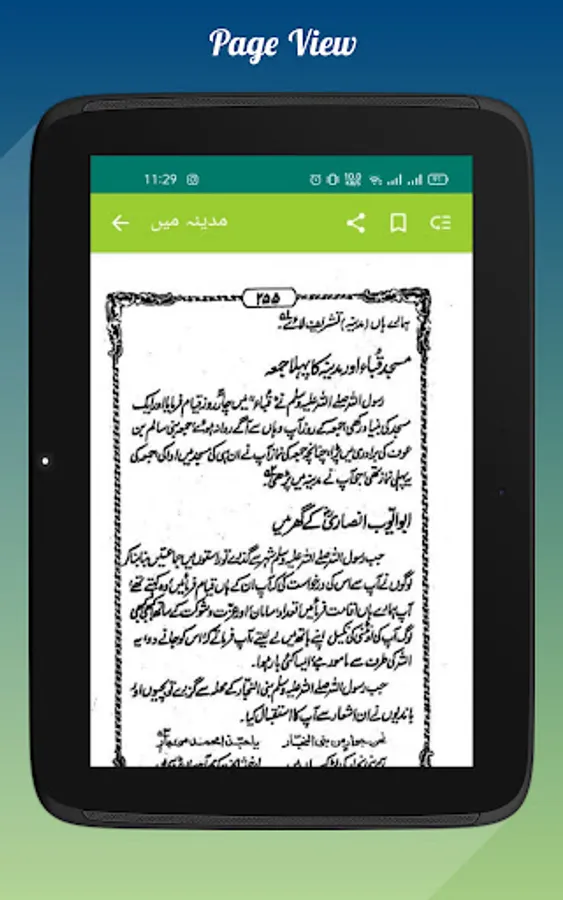 Page View
11:29
مدینہ میں
۲۵۵
ہمارے ہاں (مدینہ) تشریف لائے۔
مسجد قُباء اور مدینہ کا پہلا جمعہ
رسول اللہ صلے اللہ علیہ وسلم نے "قُباء" میں چار روز قیام فرمایا اور ایک
مسجد کی بنیاد رکھی، جمعہ کے روز آپ وہاں سے آگے روانہ ہوئے، جمعہ بنی سالم بن
عوف کی برادری میں پڑا، چنانچہ جمعہ کی نماز آپ نے ان ہی کی مسجد میں ادا کی، جمعہ کی
یہ پہلی نماز تھی جو آپ نے مدینہ میں پڑھی۔
ابو ایوب انصاریؓ کے گھر میں
جب رسول اللہ صلے اللہ علیہ وسلم شہر سے گذرے تو راستوں میں جماعتیں بنا بنا کر
لوگوں نے آپ سے اس کی درخواست کی کہ آپ ان کے ہاں قیام فرمائیں، وہ کہتے تھے
آپ ہمارے ہاں اقامت فرمائیں تعداد، سامان اور عزت و شوکت کے ساتھ، کبھی کبھی
لوگ آپ کی اونٹنی کی نکیل اپنے ہاتھ میں لے لیتے، آپ فرماتے کہ اس کو جانے دو، یہ
اللہ کی طرف سے مامور ہے، ایسا کئی بار ہوا۔
جب رسول اللہ صلے اللہ علیہ وسلم بنی النجار کے محلہ سے گزرے تو بچیوں اور
باندیوں نے ان اشعار سے آپ کا استقبال کیا۔
نحن جوار من بنی النجار یا حبذا محمد من جار